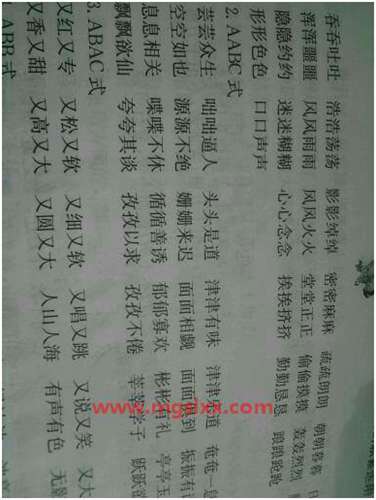 吞吞吐吐 浩浩荡荡 影影绰绰 密密麻麻 疏疏朗朗 朝朝暮暮
浑浑噩噩 风风雨雨 风风火火 堂堂正正 偷偷摸摸 轰轰烈烈
隐隐约约 迷迷糊糊 心心念念 挨挨挤挤 勤勤恳恳
形形色色 口口声声
2. AABC 式
芸芸众生 咄咄逼人 头头是道 津津有味 津津乐道 奄奄一
空空如也 源源不绝 姗姗来迟 面面相觑 面面俱到 振振有
息息相关 喋喋不休 循循善诱 郁郁寡欢 彬彬有礼 亭亭玉
飘飘欲仙 夸夸其谈 孜孜以求 孜孜不倦 莘莘学子 跃跃欲
3. ABAC 式
又红又专 又松又软 又细又软 又唱又跳 又说又笑 又大
又香又甜 又高又大 又圆又大 人山人海 有声有色 无影
ABB 式